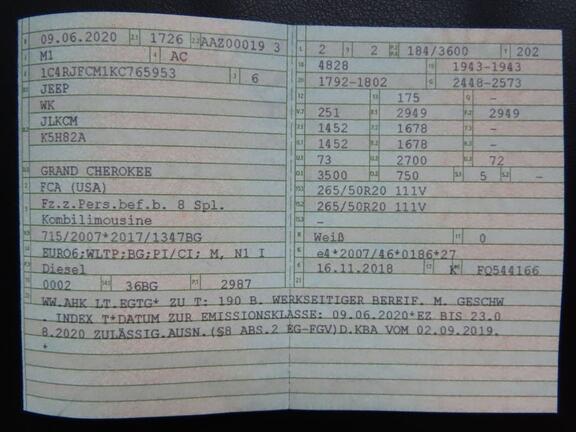 09.06.2020 2.1 1726 2.2 AAZ00019 3
M1 4 AC
1C4RJFCM1KC765953 3 6
JEEP
WK
JLKCM
K5H82A
GRAND CHEROKEE
FCA (USA)
Fz.z.Pers.bef.b. 8 Spl.
Kombilimousine
715/2007*2017/1347BG
EURO6;WLTP;BG;PI/CI; M, N1 I
Diesel
0002 14.1 36BG P.1 2987
L 2 9 2 184/3600 T 202
18 4828 19 1943-1943
20 1792-1802 G 2448-2573
12 - 13 175 Q -
V.7 251 F.1 2949 F.2 2949
7.1 1452 7.2 1678 7.3 -
8.1 1452 8.2 1678 8.3 -
U.1 73 U.2 2700 U.3 72
O.1 3500 O.2 750 S.1 5 S.2 -
15.1 265/50R20 111V
15.2 265/50R20 111V
15.3 -
R Weiß 11 0
K e4*2007/46*0186*27
6 16.11.2018 17 K FQ544166
21
WW.AHK LT.EGTG* ZU T: 190 B. WERKSEITIGER BEREIF. M. GESCHW
. INDEX T*DATUM ZUR EMISSIONSKLASSE: 09.06.2020*EZ BIS 23.0
8.2020 ZULÄSSIG.AUSN.(§8 ABS.2 EG-FGV)D.KBA VOM 02.09.2019.
*